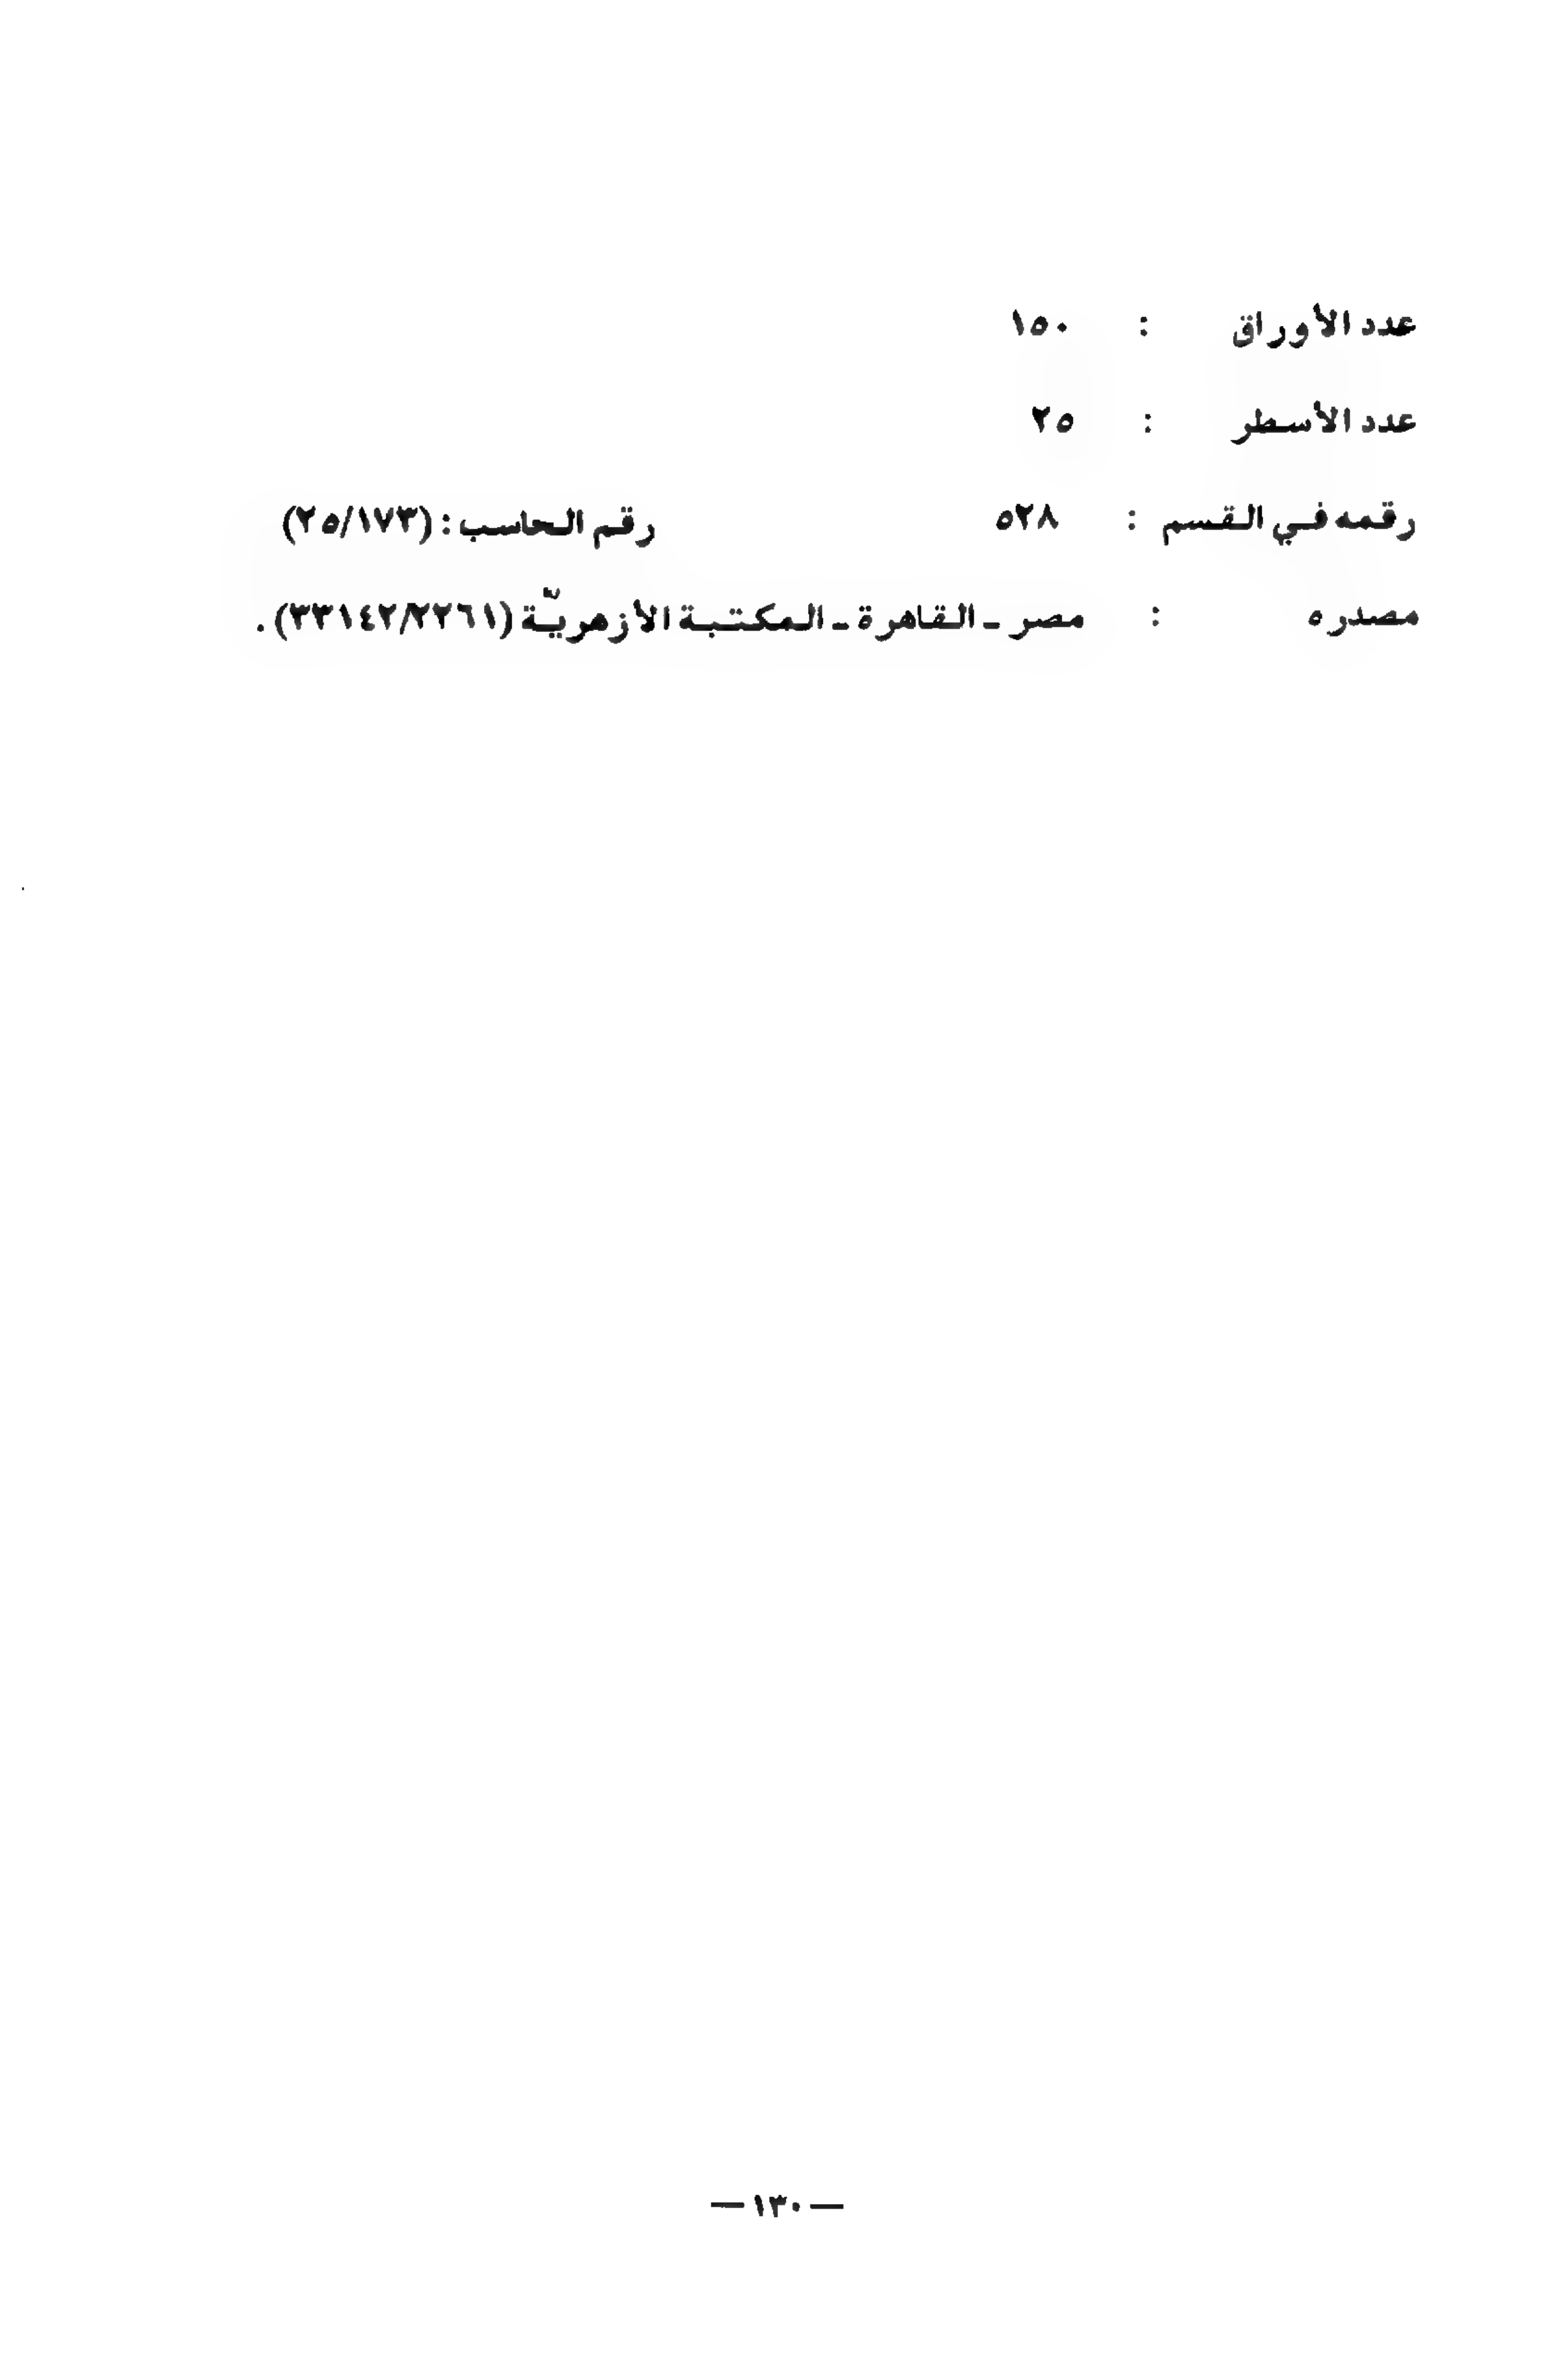 عدد الأوراق : ١٥٠
عدد الأسطر : ٢٥
رقمه في القسم : ٥٢٨ رقم الحاسب : (٢٥/١٧٣)
مصدره : مصر ـ القاهرة ـ المكتبة الأزهريّة (٣٣١٤٢/٢٢٦١) .
— ١٣٠ —